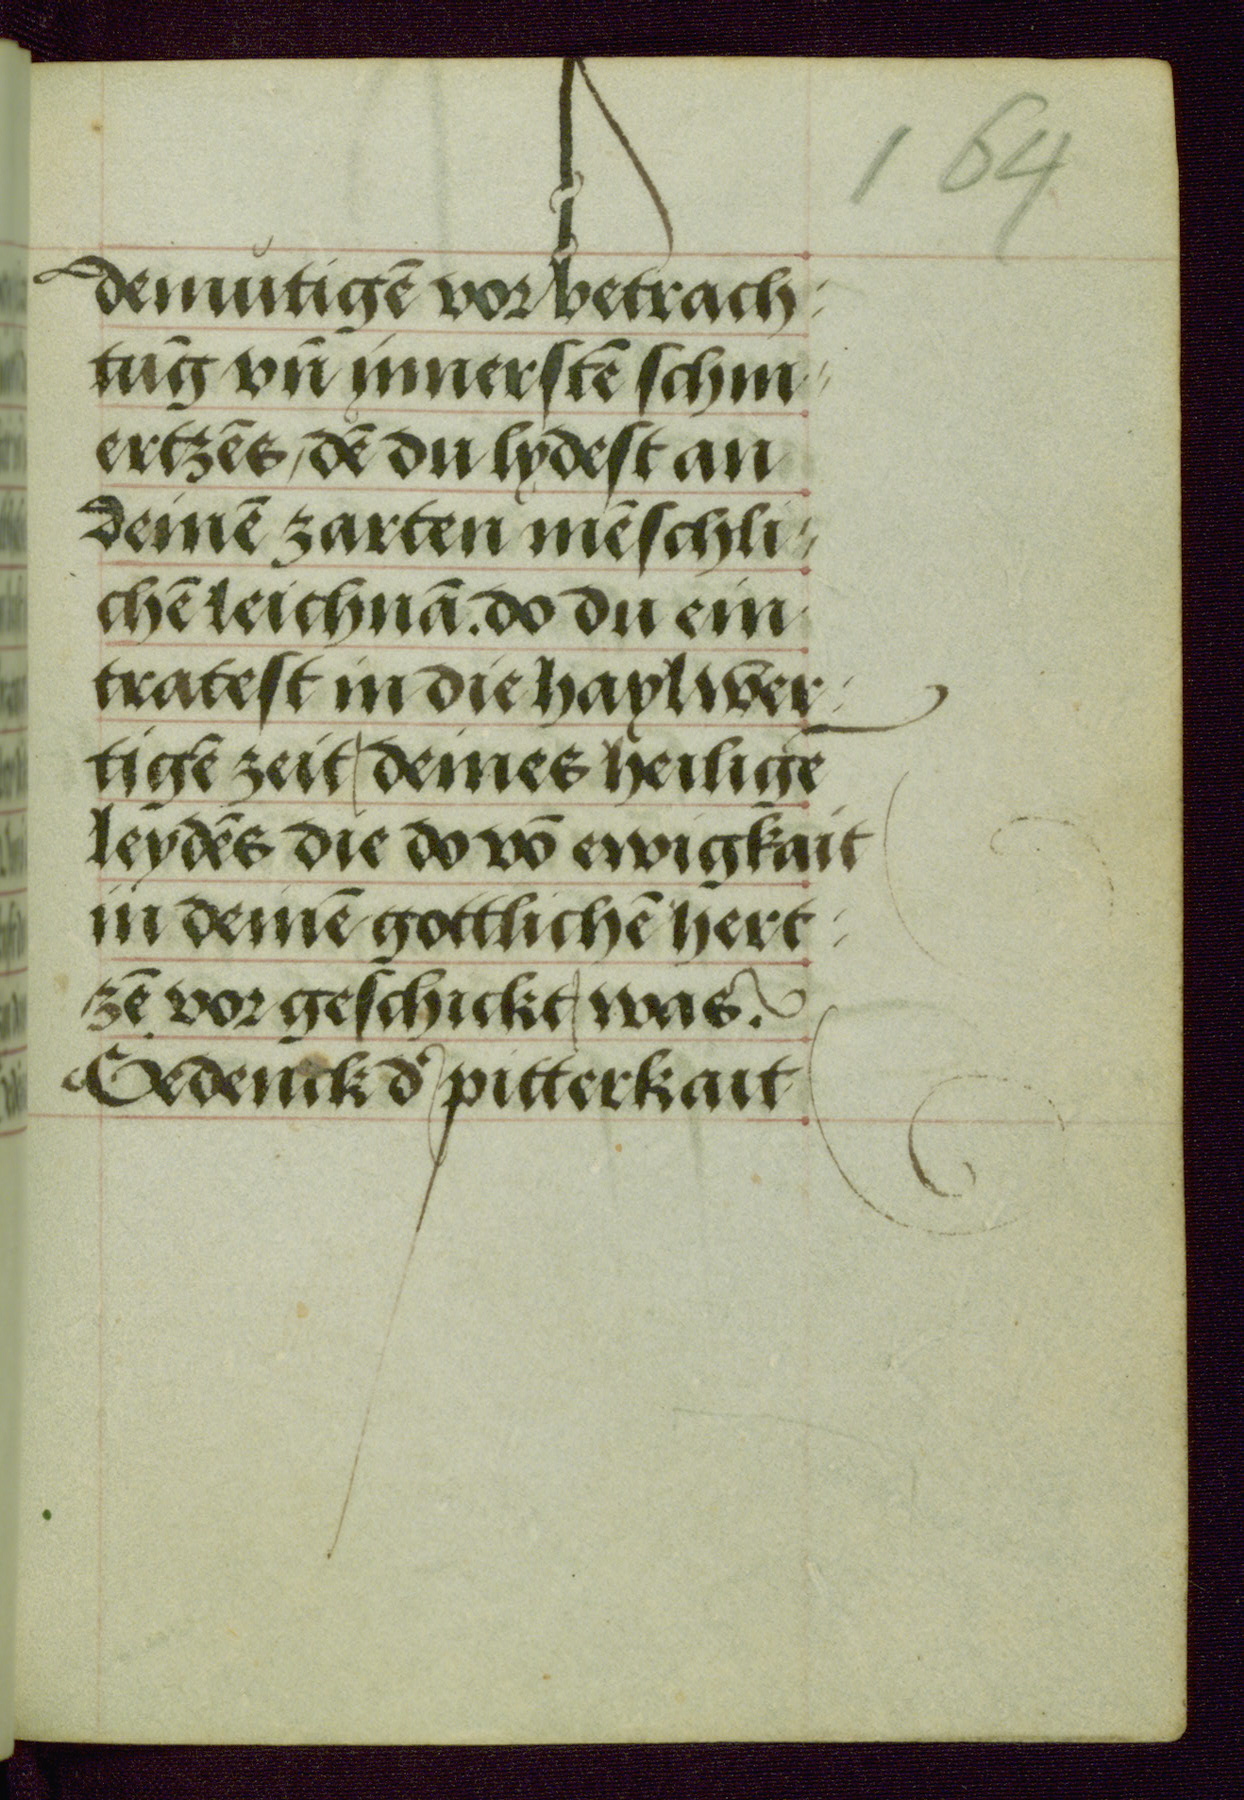 164
demŭtigē vor betrach⸗
tūg vn̄ ỳnnerstē schm⸗
ertzēs, dē du lydest an
deinē zarten mēschli⸗
chē leichnā. do du ein
tratest in die haylwer⸗
tigē zeit deines heiligē
leydēs die do vō ewigkait
in deinē gottlichē hert⸗
zē vor geschickt was.
Gedenck dˀ pitterkait